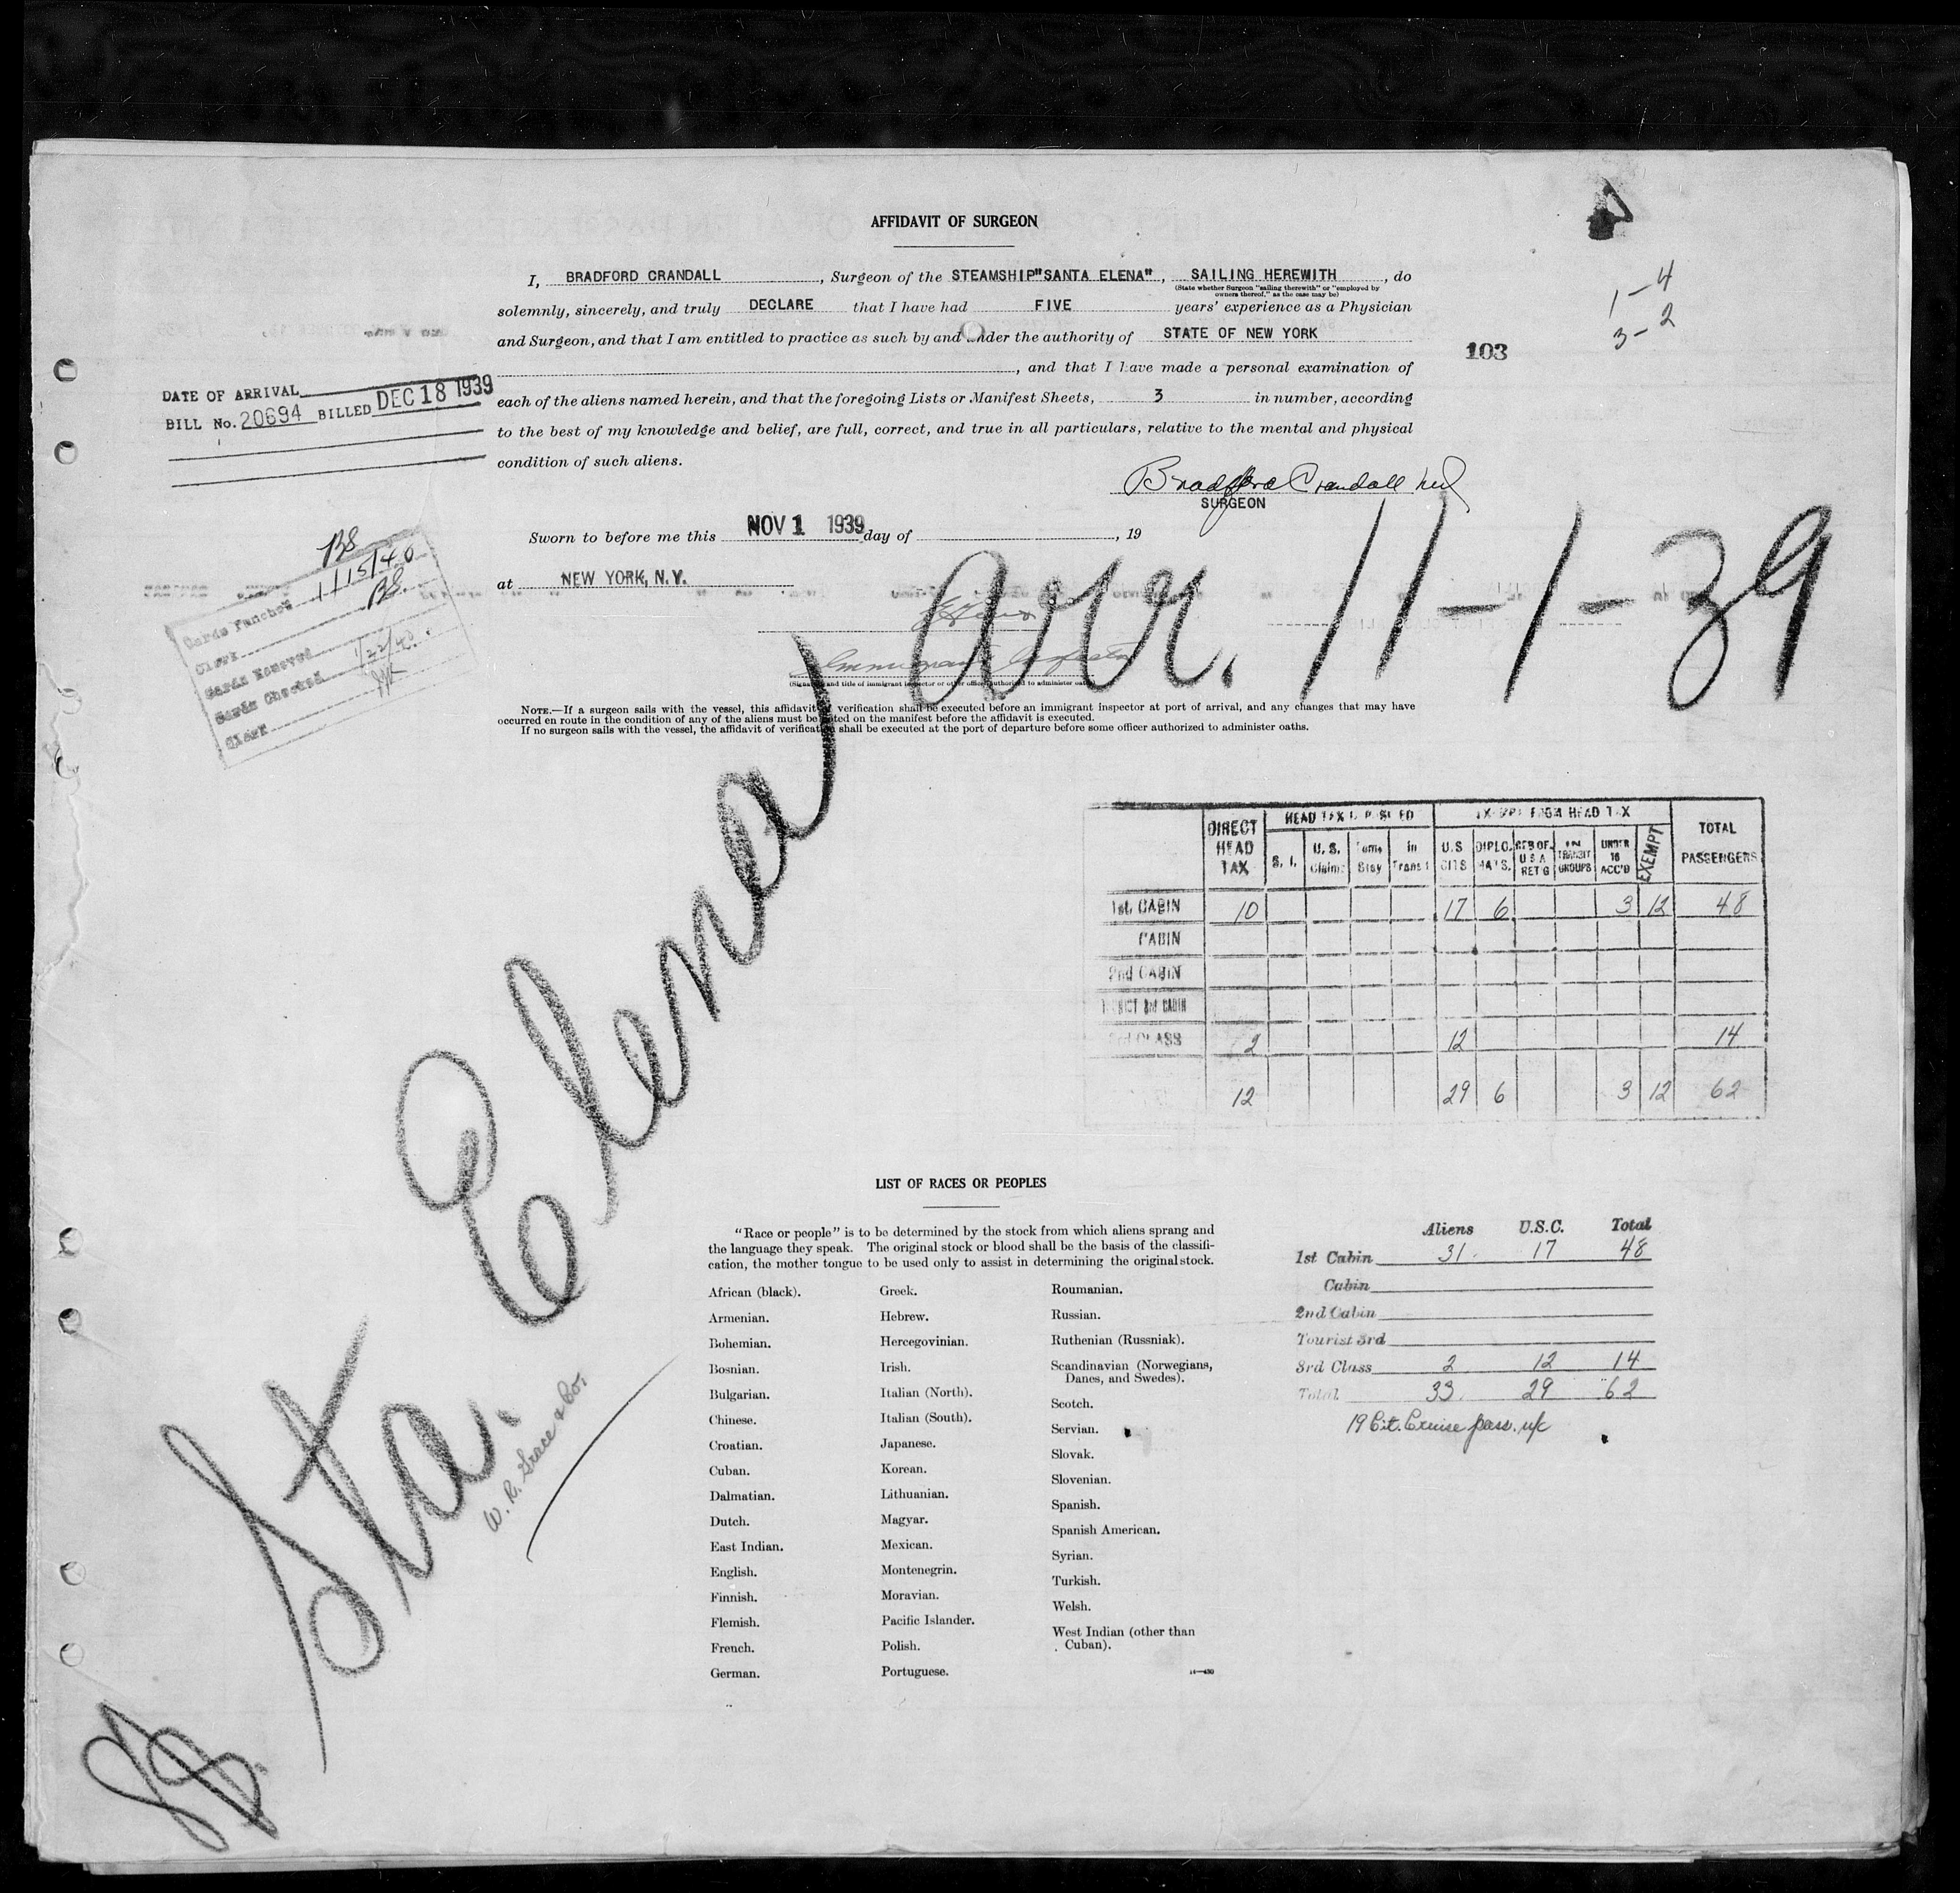 4
AFFIDAVIT OF SURGEON
I, BRADFORD CRANDALL, Surgeon of the STEAMSHIP "SANTA ELENA", SAILING HEREWITH, do
(State whether Surgeon "sailing therewith" or "employed by
owners thereof," as the case may be)
solemnly, sincerely, and truly DECLARE that I have had FIVE years' experience as a Physician
and Surgeon, and that I am entitled to practice as such by and under the authority of STATE OF NEW YORK
, and that I have made a personal examination of
each of the aliens named herein, and that the foregoing Lists or Manifest Sheets, 3 in number, according
to the best of my knowledge and belief, are full, correct, and true in all particulars, relative to the mental and physical
condition of such aliens.
1-4
3-2
103
DATE OF ARRIVAL
BILL No. 20694 BILLED DEC 18 1939
Bradford Crandall
SURGEON
Sworn to before me this NOV 1 1939 day of , 19
at NEW YORK, N.Y.
Arr. 11-1-39
Cards Punched 1/15/40
Clerk
Cards Removed
Cards Checked
Clerk
(Signature and title of immigrant inspector or other officer authorized to administer oaths)
NOTE.—If a surgeon sails with the vessel, this affidavit of verification shall be executed before an immigrant inspector at port of arrival, and any changes that may have
occurred en route in the condition of any of the aliens must be noted on the manifest before the affidavit is executed.
If no surgeon sails with the vessel, the affidavit of verification shall be executed at the port of departure before some officer authorized to administer oaths.
Sta. Elena
W. R. Grace & Co.
DIRECT HEAD TAX HEAD TAX DEPOSITED EXEMPT FROM HEAD TAX TOTAL PASSENGERS
S. I. U. S. Claims Temp Stay In Transit U.S CITS DIPLO. MATS. RES OF U S A RET'G IN TRANSIT GROUPS UNDER 16 ACC'D EXEMPT
1st. CABIN 10 17 6 3 12 48
CABIN
2nd CABIN
TOURIST 3rd CABIN
3rd CLASS 2 12 14
12 29 6 3 12 62
LIST OF RACES OR PEOPLES
"Race or people" is to be determined by the stock from which aliens sprang and
the language they speak. The original stock or blood shall be the basis of the classifi-
cation, the mother tongue to be used only to assist in determining the original stock.
African (black).
Armenian.
Bohemian.
Bosnian.
Bulgarian.
Chinese.
Croatian.
Cuban.
Dalmatian.
Dutch.
East Indian.
English.
Finnish.
Flemish.
French.
German.
Greek.
Hebrew.
Hercegovinian.
Irish.
Italian (North).
Italian (South).
Japanese.
Korean.
Lithuanian.
Magyar.
Mexican.
Montenegrin.
Moravian.
Pacific Islander.
Polish.
Portuguese.
Roumanian.
Russian.
Ruthenian (Russniak).
Scandinavian (Norwegians,
Danes, and Swedes).
Scotch.
Servian.
Slovak.
Slovenian.
Spanish.
Spanish American.
Syrian.
Turkish.
Welsh.
West Indian (other than
Cuban).
Aliens U.S.C. Total
1st Cabin 31 17 48
Cabin
2nd Cabin
Tourist 3rd
3rd Class 2 12 14
Total 33 29 62
19 Cit. Cruise pass.